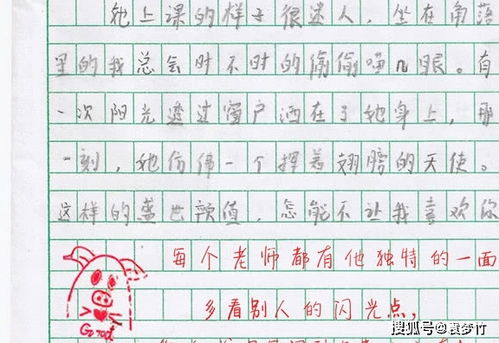 她上课的样子很迷人，坐在角落
里的我总会时不时的偷偷喵几眼。有
一次阳光透过窗户洒在了她身上，那
一刻，她仿佛一个挥着翅膀的天使。
这样的盛世颜值，怎能不让我喜欢你
每个老师都有他独特的一面
多看别人的闪光点，
Good
搜狐号@袁梦竹